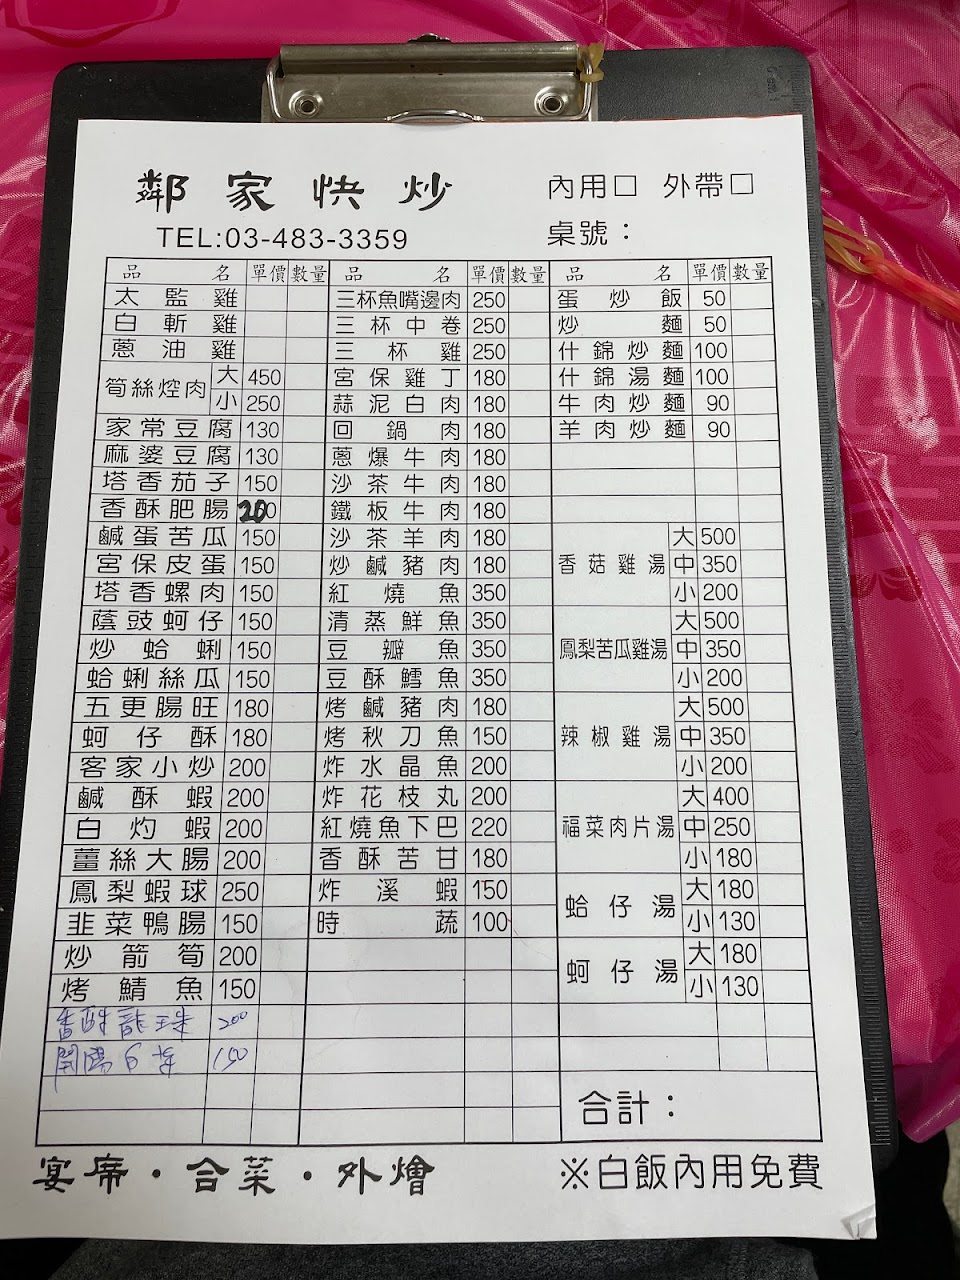 鄰家快炒
內用□ 外帶□
TEL:03-483-3359
桌號：
品名 單價 數量
太監雞
白斬雞
蔥油雞
筍絲焢肉 大 450
小 250
家常豆腐 130
麻婆豆腐 130
塔香茄子 150
香酥肥腸 200
鹹蛋苦瓜 150
宮保皮蛋 150
塔香螺肉 150
蔭豉蚵仔 150
炒蛤蜊 150
蛤蜊絲瓜 150
五更腸旺 180
蚵仔酥 180
客家小炒 200
鹹酥蝦 200
白灼蝦 200
薑絲大腸 200
鳳梨蝦球 250
韭菜鴨腸 150
炒箭筍 200
烤鯖魚 150
香酥龍珠 200
開陽白菜 150
品名 單價 數量
三杯魚嘴邊肉 250
三杯中卷 250
三杯雞 250
宮保雞丁 180
蒜泥白肉 180
回鍋肉 180
蔥爆牛肉 180
沙茶牛肉 180
鐵板牛肉 180
沙茶羊肉 180
炒鹹豬肉 180
紅燒魚 350
清蒸鮮魚 350
豆瓣魚 350
豆酥鱈魚 350
烤鹹豬肉 180
烤秋刀魚 150
炸水晶魚 200
炸花枝丸 200
紅燒魚下巴 220
香酥苦甘 180
炸溪蝦 150
時蔬 100
品名 單價 數量
蛋炒飯 50
炒麵 50
什錦炒麵 100
什錦湯麵 100
牛肉炒麵 90
羊肉炒麵 90
香菇雞湯 大 500
中 350
小 200
鳳梨苦瓜雞湯 大 500
中 350
小 200
辣椒雞湯 大 500
中 350
小 200
福菜肉片湯 大 400
中 250
小 180
蛤仔湯 大 180
小 130
蚵仔湯 大 180
小 130
合計：
宴席・合菜・外燴
※白飯內用免費